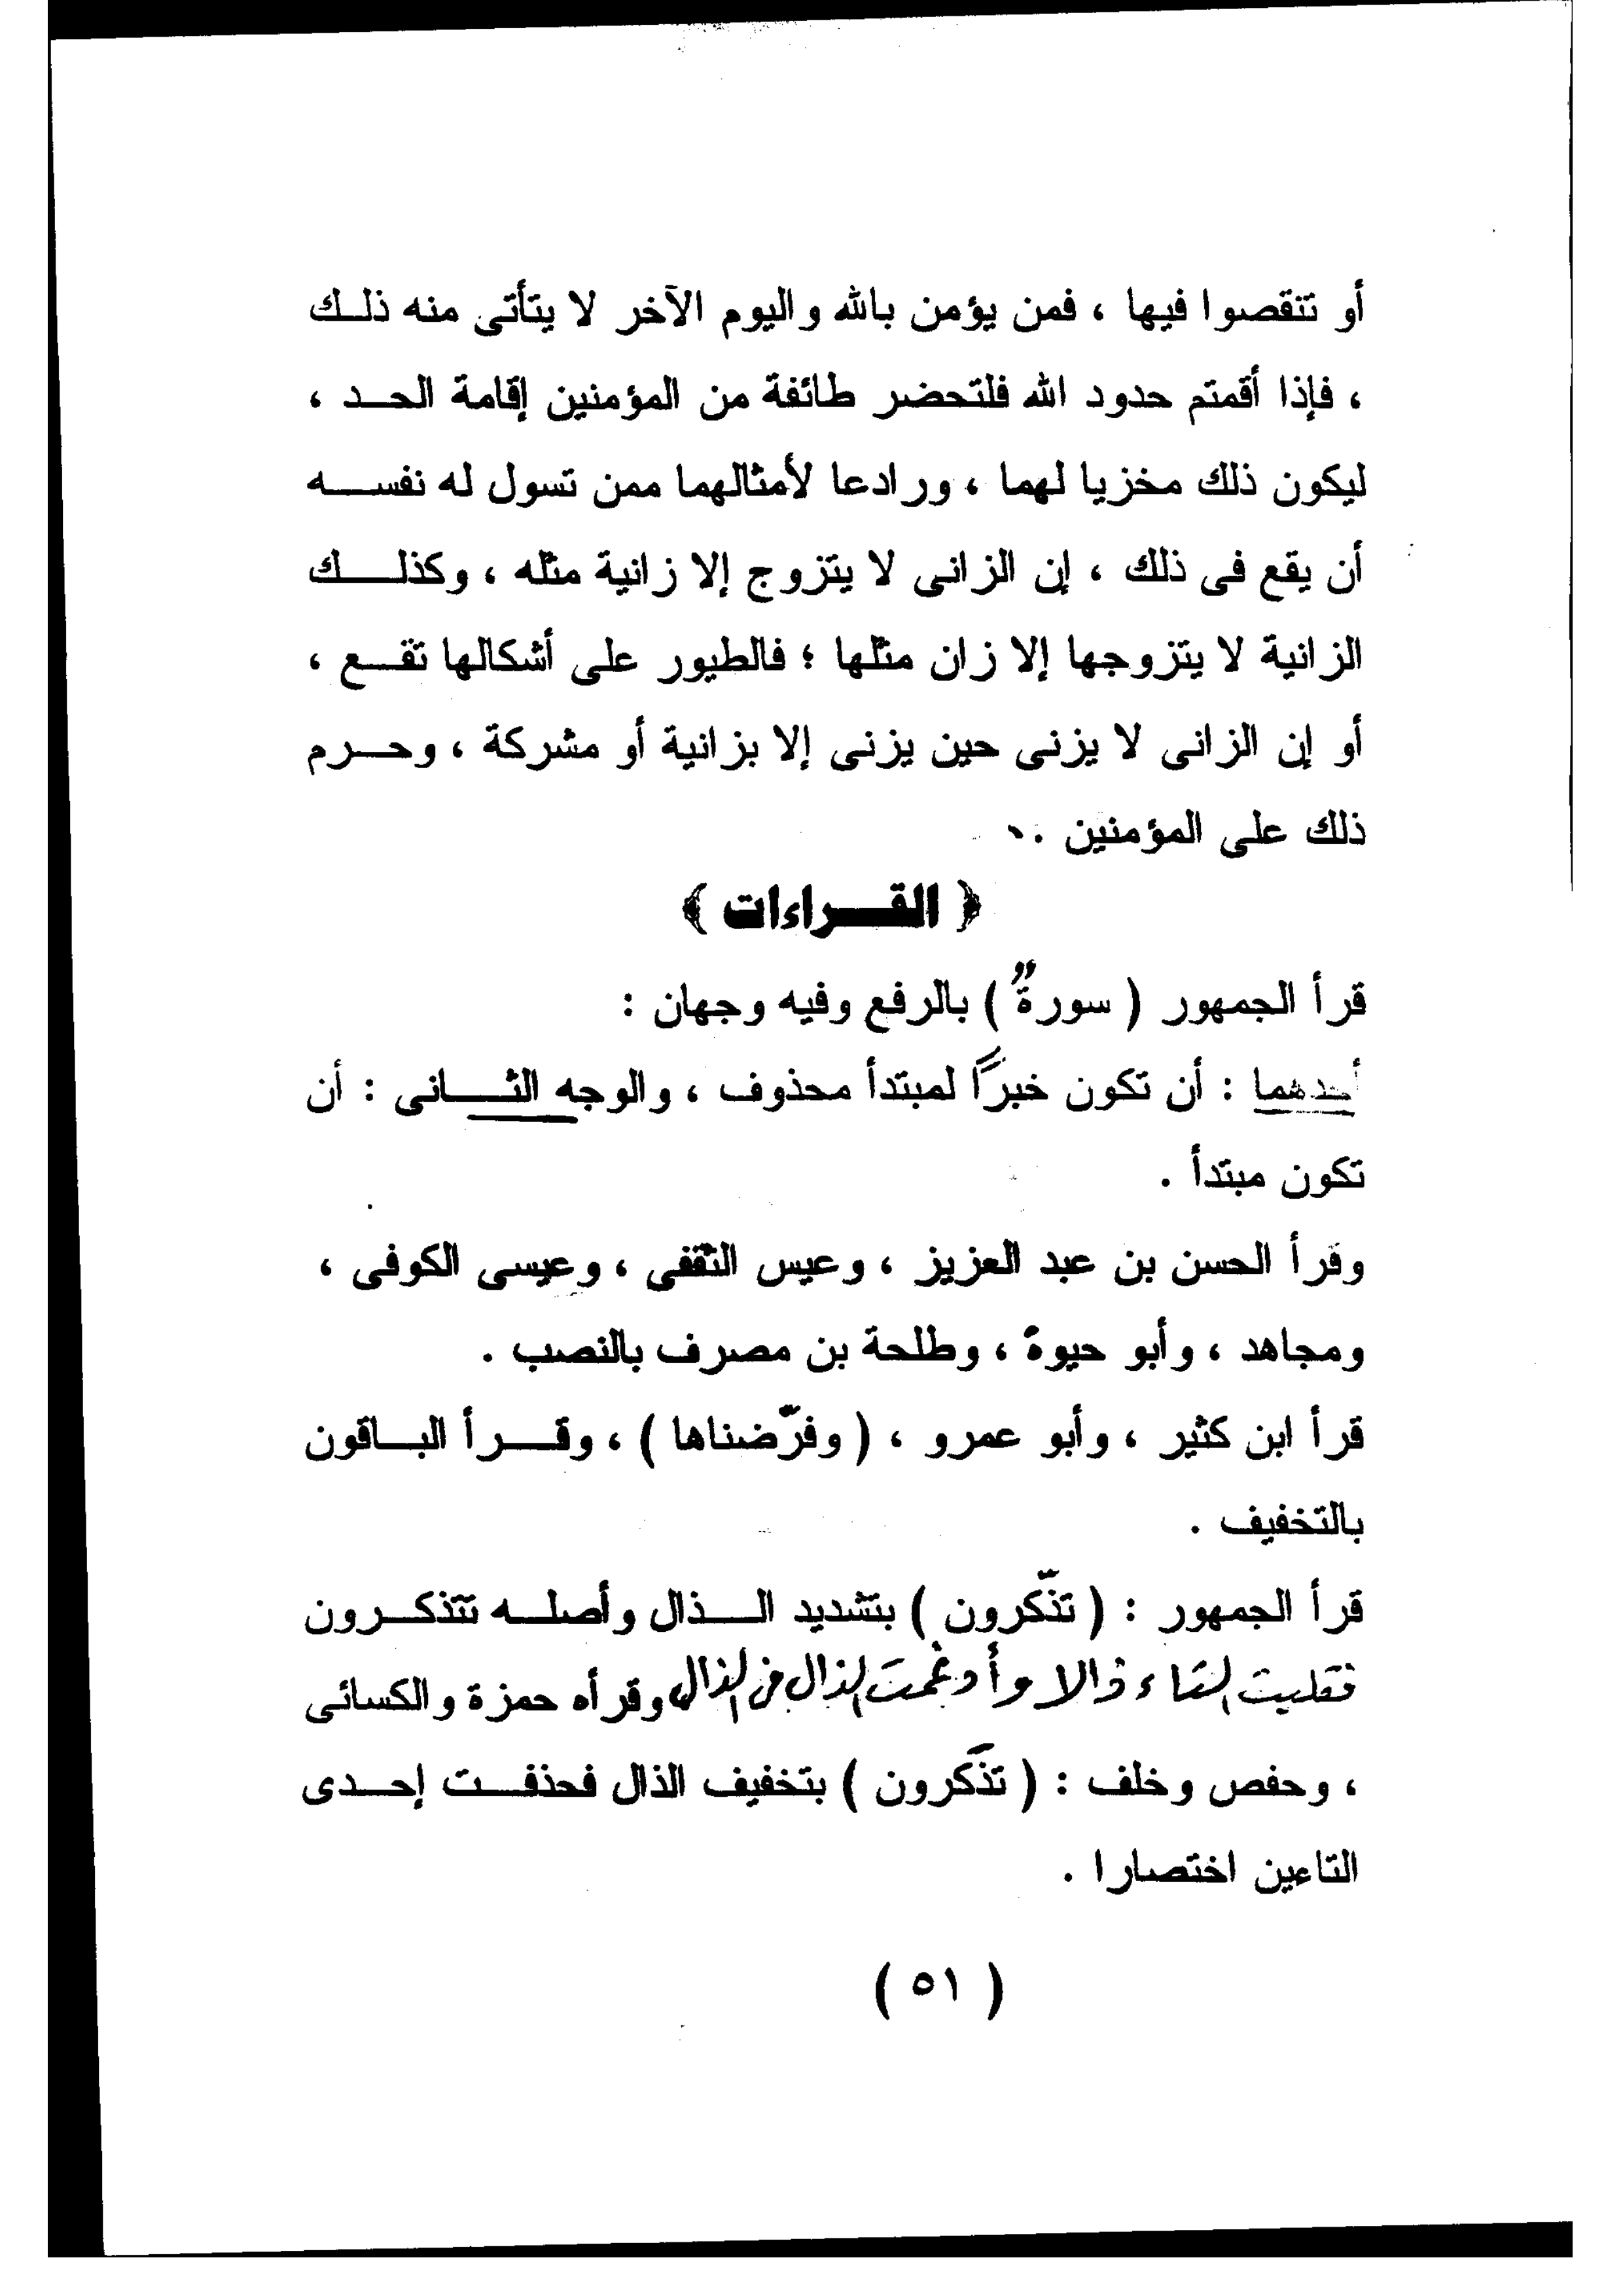 أو تنقصوا فيها ، فمن يؤمن بالله واليوم الآخر لا يتأتى منه ذلك
، فإذا أقمتم حدود الله فلتحضر طائفة من المؤمنين إقامة الحد ،
ليكون ذلك مخزيا لهما ، ورادعا لأمثالهما ممن تسول له نفسه
أن يقع فى ذلك ، إن الزانى لا يتزوج إلا زانية مثله ، وكذلك
الزانية لا يتزوجها إلا زان مثلها ؛ فالطيور على أشكالها تقع ،
أو إن الزانى لا يزنى حين يزنى إلا بزانية أو مشركة ، وحرم
ذلك على المؤمنين .
﴿ القراءات ﴾
قرأ الجمهور ( سورةٌ ) بالرفع وفيه وجهان :
أحدهما : أن تكون خبرًا لمبتدأ محذوف ، والوجه الثانى : أن
تكون مبتدأ .
وقرأ الحسن بن عبد العزيز ، وعيس الثقفى ، وعيسى الكوفى ،
ومجاهد ، وأبو حيوة ، وطلحة بن مصرف بالنصب .
قرأ ابن كثير ، وأبو عمرو ، ( وفرّضناها ) ، وقرأ الباقون
بالتخفيف .
قرأ الجمهور : ( تذّكرون ) بتشديد الذال وأصله تتذكرون
فقلبت التاء ذالا وأدغمت الذال فى الذال وقرأه حمزة والكسائى
، وحفص وخلف : ( تذَكرون ) بتخفيف الذال فحذفت إحدى
التاءين اختصارا .
( ٥١ )